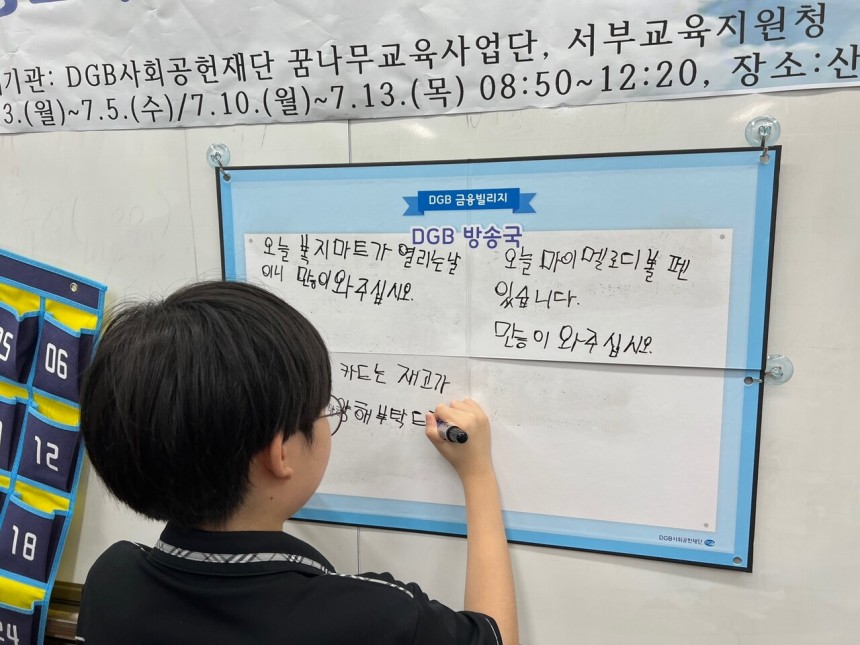 기관: DGB사회공헌재단 꿈나무교육사업단, 서부교육지원청
3.(월)~7.5.(수)/7.10.(월)~7.13.(목) 08:50~12:20, 장소:산
DGB 금융빌리지
DGB 방송국
오늘 복지마트가 열리는날
이니 만이 와주십시오.
오늘 마이멜로디볼펜
있습니다.
만능이 와주십시오.
카드는 재고가
해부탁드
DGB사회공헌재단
05
06
12
18
24